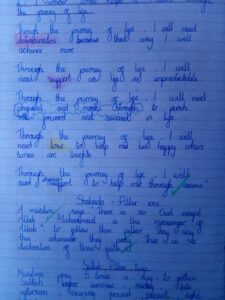 the journey of life.
Through the journey of life I will need
determination because that way I will
achieve more
Through the journey of life I will
need support as life is unpredictable.
Through the journey of life I will need
physical and mental strength to push
me forward and succeed in life
Through the journey of life I will
need love to help me be happy when
times are tough.
Through the journey of life I will
need support to help me through
Shahada - Pillar one
A muslim says "There is no God except
Allah, Muhammad is the messenger of
Allah" to follow this pillar they'd say
this whenever they This is a
declaration of their faith.
Sallah - Pillar two
Muslims pray 5 times a day to follow
Sallah before sunrise, midday, late
afternoon